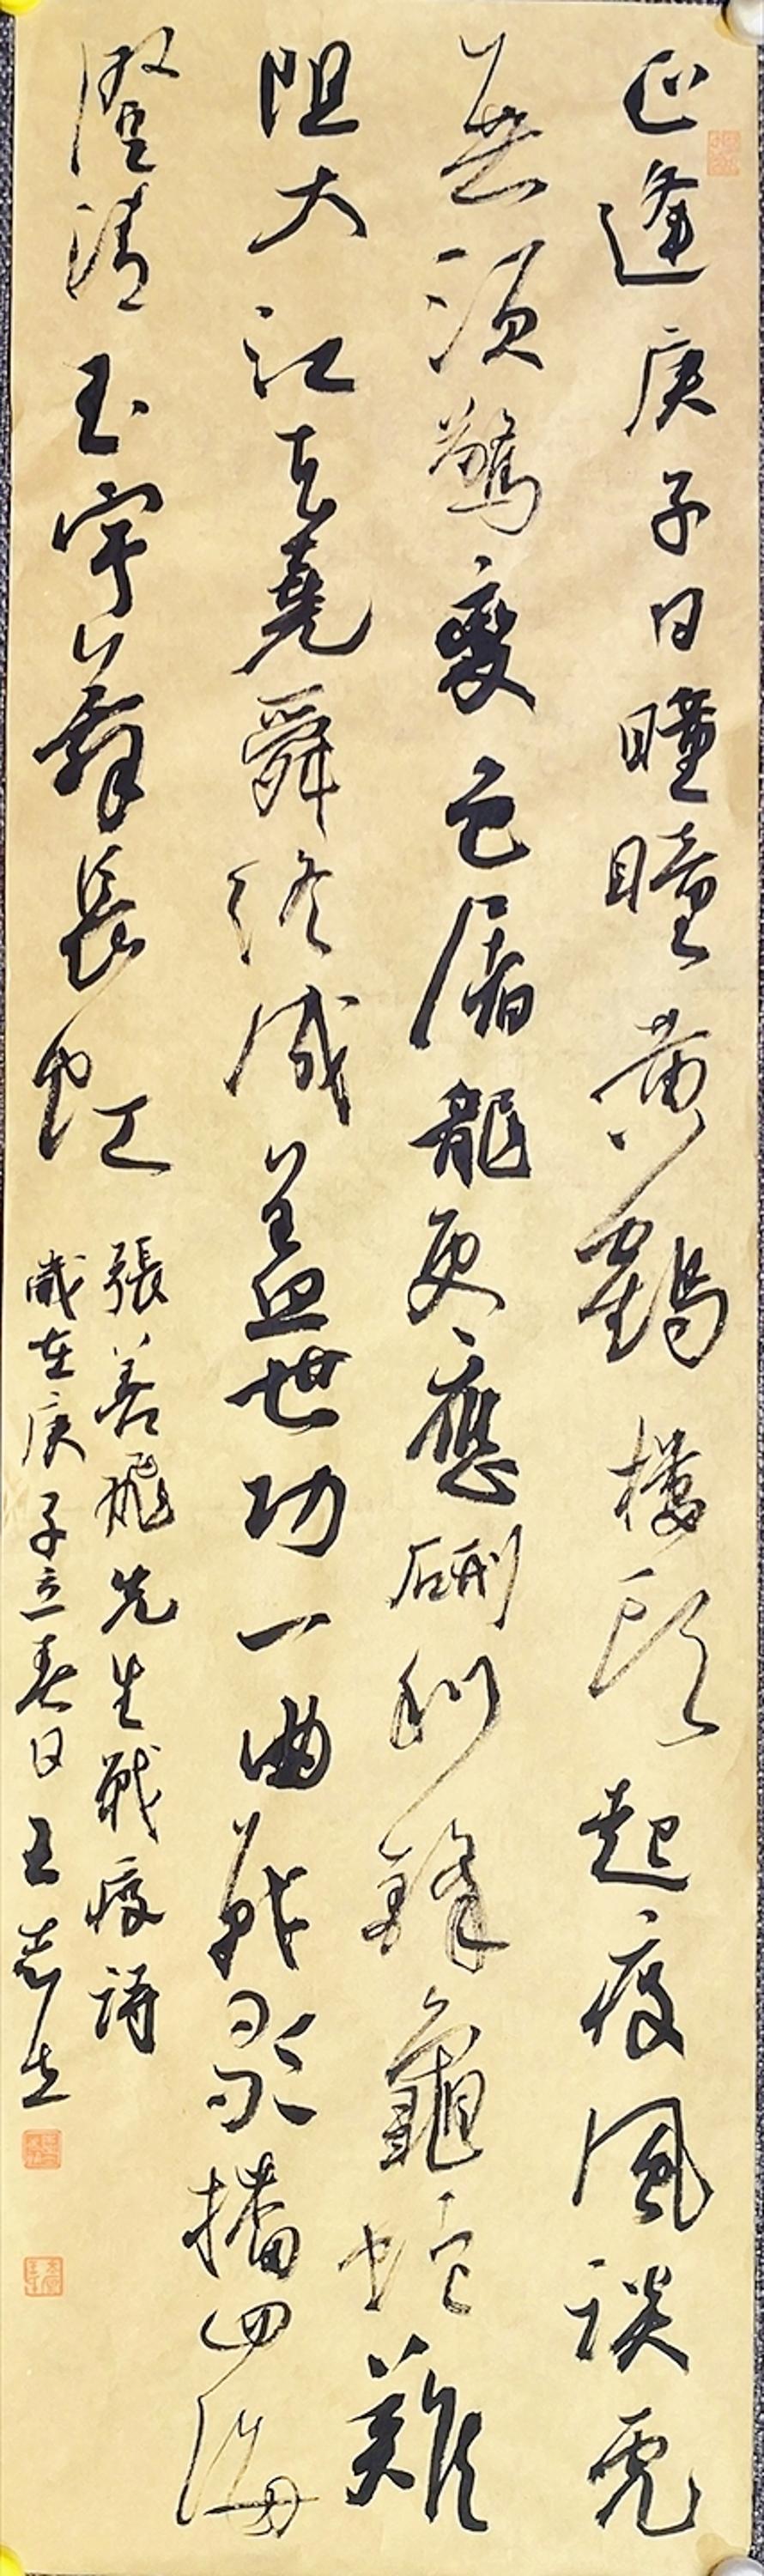 正逢庚子日瞳瞳黄鶴樓頭起疫風談虎
無須驚變色屠龍更應硎利鋒龜蛇難
阻大江去堯舜終成蓋世功一曲戰歌播四海
澄清玉宇舞長虹
張善飛先生戰疫詩
歲在庚子立春日王志生